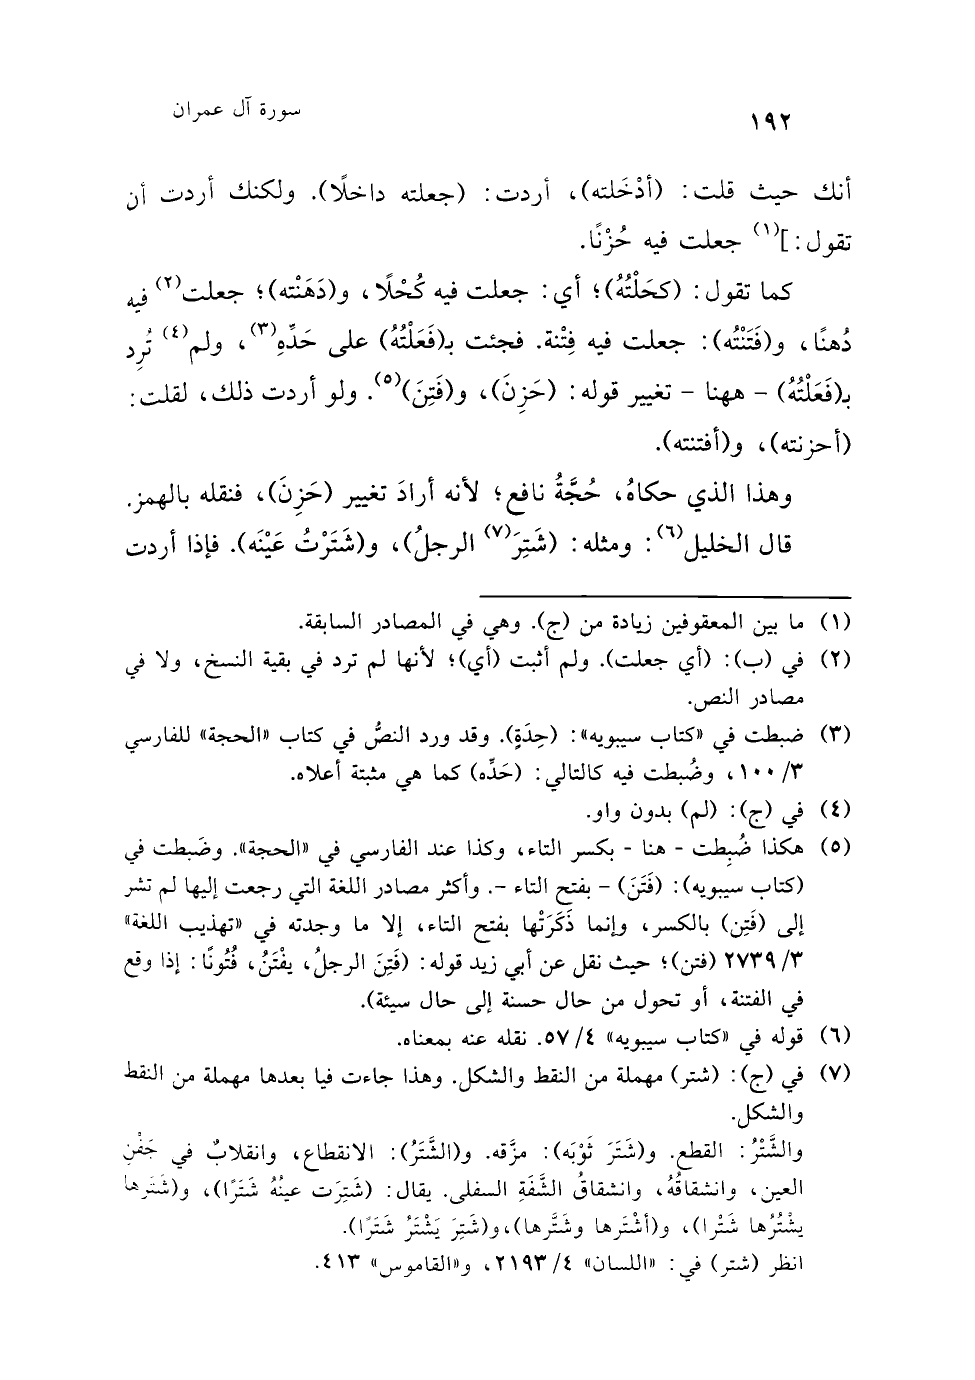 ١٩٢
سورة آل عمران
أنك حيث قلت: (أدْخَلته)، أردت: (جعلته داخلًا). ولكنك أردت أن
تقول:](١) جعلت فيه حُزْنًا.
كما تقول: (كحَلْتُهُ)؛ أي: جعلت فيه كُحْلًا، و(دَهَنْته)؛ جعلت(٢) فيه
دُهنًا، و(فَتَنْتُه): جعلت فيه فِتْنة. فجئت بـ(فَعَلْتُهُ) على حَدِّهِ(٣)، ولم(٤) تُرِد
بـ(فَعَلْتُهُ) - ههنا - تغيير قوله: (حَزِنَ)، و(فَتِنَ)(٥). ولو أردت ذلك، لقلت:
(أحزنته)، و(أفتنته).
وهذا الذي حكاهُ، حُجَّةُ نافع؛ لأنه أرادَ تغيير (حَزِنَ)، فنقله بالهمز.
قال الخليل(٦): ومثله: (شَتِرَ(٧) الرجلُ)، و(شَتَرْتُ عَيْنَه). فإذا أردت
(١) ما بين المعقوفين زيادة من (ج). وهي في المصادر السابقة.
(٢) في (ب): (أي جعلت). ولم أثبت (أي)؛ لأنها لم ترد في بقية النسخ، ولا في
مصادر النص.
(٣) ضبطت في «كتاب سيبويه»: (حِدَةٍ). وقد ورد النصُّ في كتاب «الحجة» للفارسي
٣/ ١٠٠، وضُبطت فيه كالتالي: (حَدِّه) كما هي مثبتة أعلاه.
(٤) في (ج): (لم) بدون واو.
(٥) هكذا ضُبِطت - هنا - بكسر التاء، وكذا عند الفارسي في «الحجة». وضَبطت في
(كتاب سيبويه): (فَتَنَ) - بفتح التاء -. وأكثر مصادر اللغة التي رجعت إليها لم تشر
إلى (فَتِن) بالكسر، وإنما ذَكَرَتْها بفتح التاء، إلا ما وجدته في «تهذيب اللغة»
٣/ ٢٧٣٩ (فتن)؛ حيث نقل عن أبي زيد قوله: (فَتِنَ الرجلُ، يفْتَنُ، فُتُونًا: إذا وقع
في الفتنة، أو تحول من حال حسنة إلى حال سيئة).
(٦) قوله في «كتاب سيبويه» ٤/ ٥٧. نقله عنه بمعناه.
(٧) في (ج): (شتر) مهملة من النقط والشكل. وهذا جاءت فيا بعدها مهملة من النقط
والشكل.
والشَّتْرُ: القطع. و(شَتَرَ ثَوْبَه): مزَّقه. و(الشَّتَرُ): الانقطاع، وانقلابٌ في جَفْنِ
العين، وانشقاقُهُ، وانشقاقُ الشَّفَةِ السفلى. يقال: (شَتِرَت عينُهُ شَتَرًا)، و(شَتَرها
يشْتُرُها شَتْرا)، و(أشْتَرها وشَتَّرها)، و(شَتِرَ يَشْتَرُ شَتَرًا).
انظر (شتر) في: «اللسان» ٤/ ٢١٩٣، و«القاموس» ٤١٣.